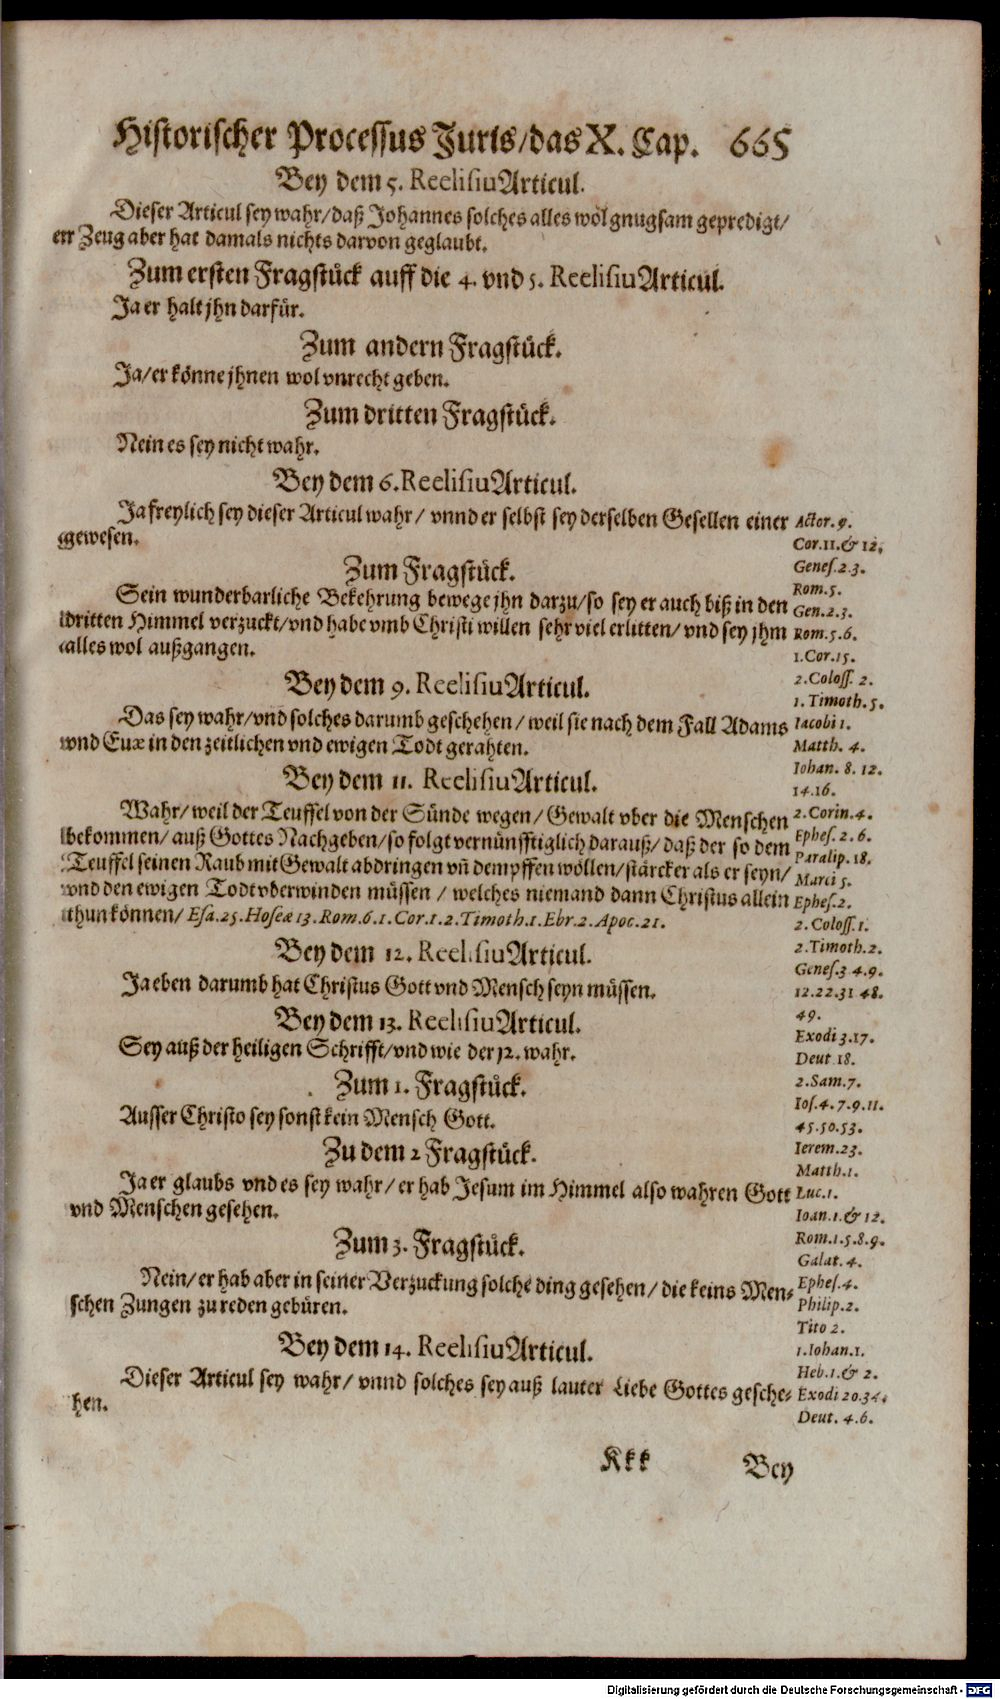 Historischer Processus Juris/das X. Cap. 665
Bey dem 5. Reelisiu Articul.
Dieser Articul sey wahr/daß Johannes solches alles wol gnugsam gepredigt/
err Zeug aber hat damals nichts darvon geglaubt.
Zum ersten Fragstück auff die 4. vnd 5. Reelisiu Articul.
Ja er halt jhn darfür.
Zum andern Fragstück.
Ja/er könne jhnen wol vnrecht geben.
Zum dritten Fragstück.
Nein es sey nicht wahr.
Bey dem 6. Reelisiu Articul.
Ja freylich sey dieser Articul wahr/ vnnd er selbst sey derselben Gesellen einer
gewesen.
Zum Fragstück.
Sein wunderbarliche Bekehrung bewege jhn darzu/so sey er auch biß in den
dritten Himmel verzuckt/vnd habe vmb Christi willen sehr viel erlitten/ vnd sey jhm
alles wol außgangen.
Bey dem 9. Reelisiu Articul.
Das sey wahr/vnd solches darumb geschehen/ weil sie nach dem Fall Adams
vnd Euæ in den zeitlichen vnd ewigen Todt gerahten.
Bey dem 11. Reelisiu Articul.
Wahr/ weil der Teuffel von der Sünde wegen/ Gewalt vber die Menschen
bekommen/ auß Gottes Nachgeben/so folgt vernünfftiglich darauß/ daß der so dem
Teuffel seinen Raub mit Gewalt abdringen vñ dempffen wöllen/stärcker als er seyn/
vnd den ewigen Todt vberwinden müssen / welches niemand dann Christus allein
thun können/ Esa.25. Hoseæ 13. Rom.6.1. Cor.1.2. Timoth.1. Ebr.2. Apoc.21.
Bey dem 12. Reelisiu Articul.
Ja eben darumb hat Christus Gott vnd Mensch seyn müssen.
Bey dem 13. Reelisiu Articul.
Sey auß der heiligen Schrifft/vnd wie der 12. wahr.
Zum 1. Fragstück.
Ausser Christo sey sonst kein Mensch Gott.
Zu dem 2 Fragstück.
Ja er glaubs vnd es sey wahr/ er hab Jesum im Himmel also wahren Gott
vnd Menschen gesehen.
Zum 3. Fragstück.
Nein/ er hab aber in seiner Verzuckung solche ding gesehen/ die keins Men-
schen Zungen zu reden gebüren.
Bey dem 14. Reelisiu Articul.
Dieser Articul sey wahr/ vnnd solches sey auß lauter Liebe Gottes gesche-
hen.
Actor. 9.
Cor.11.& 12.
Genes.2.3.
Rom.5.
Gen.2.3.
Rom.5.6.
1.Cor.15.
2.Coloss. 2.
1. Timoth.5.
Iacobi 1.
Matth. 4.
Iohan. 8. 12.
14.16.
2.Corin.4.
Ephes. 2. 6.
Paralip.18.
Marci 5.
Ephes.2.
2. Coloss.1.
2.Timoth.2.
Genes.3 4.9.
12.22.31 48.
49.
Exodi 3.17.
Deut 18.
2.Sam.7.
Ios.4.7.9.11.
45.50.53.
Ierem.23.
Matth.1.
Luc.1.
Ioan.1.& 12.
Rom.1.5.8.9.
Galat. 4.
Ephes.4.
Philip.2.
Tito 2.
1.Iohan.1.
Heb.1.& 2.
Exodi 20.34.
Deut. 4.6.
Kkk Bey
Digitalisierung gefördert durch die Deutsche Forschungsgemeinschaft - DFG